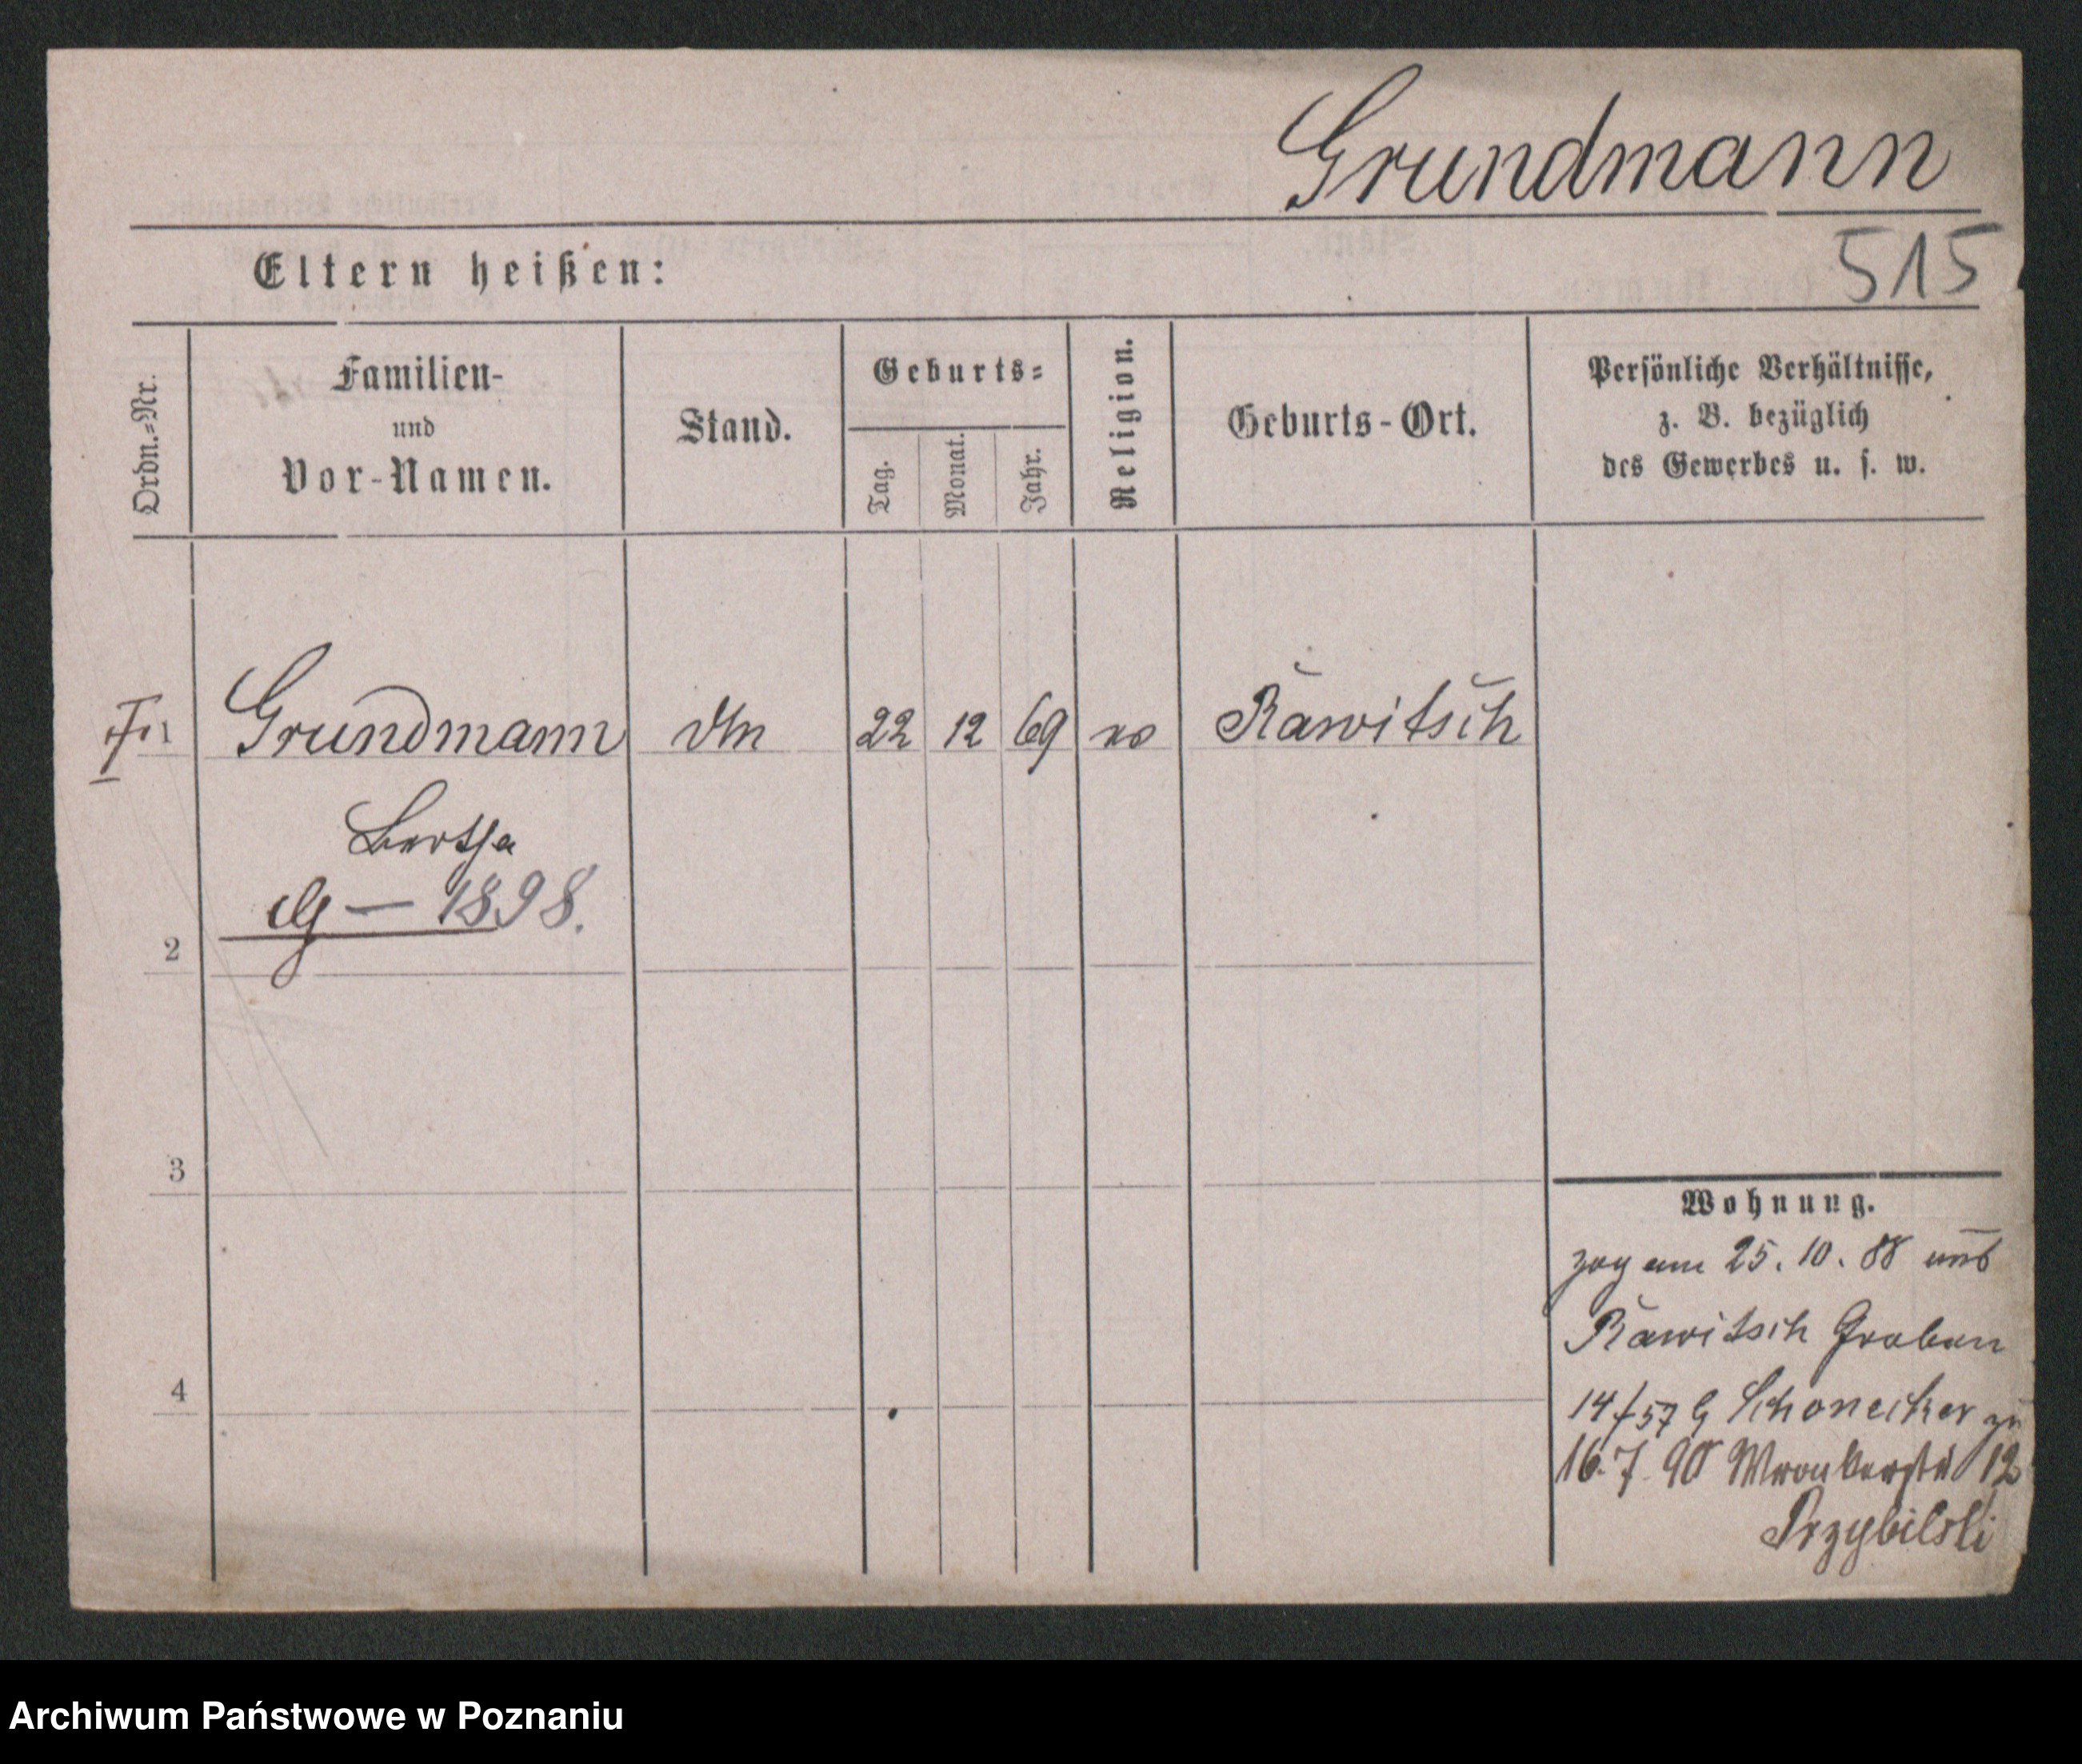 Grundmann
515
Eltern heißen:
Ordn.=Nr.
Familien-
und
Vor-Namen.
Stand.
Geburts=
Tag.
Monat.
Jahr.
Religion.
Geburts-Ort.
Persönliche Verhältnisse,
z. B. bezüglich
des Gewerbes u. s. w.
1 Grundmann 22 12 69 Rawitsch
Bertha
1898.
2
3
4
Wohnung.
zog am 25. 10. 88 aus
Rawitsch Graben
14/57 Schonecker
16. 7. 90 12
Przybilski
Archiwum Państwowe w Poznaniu